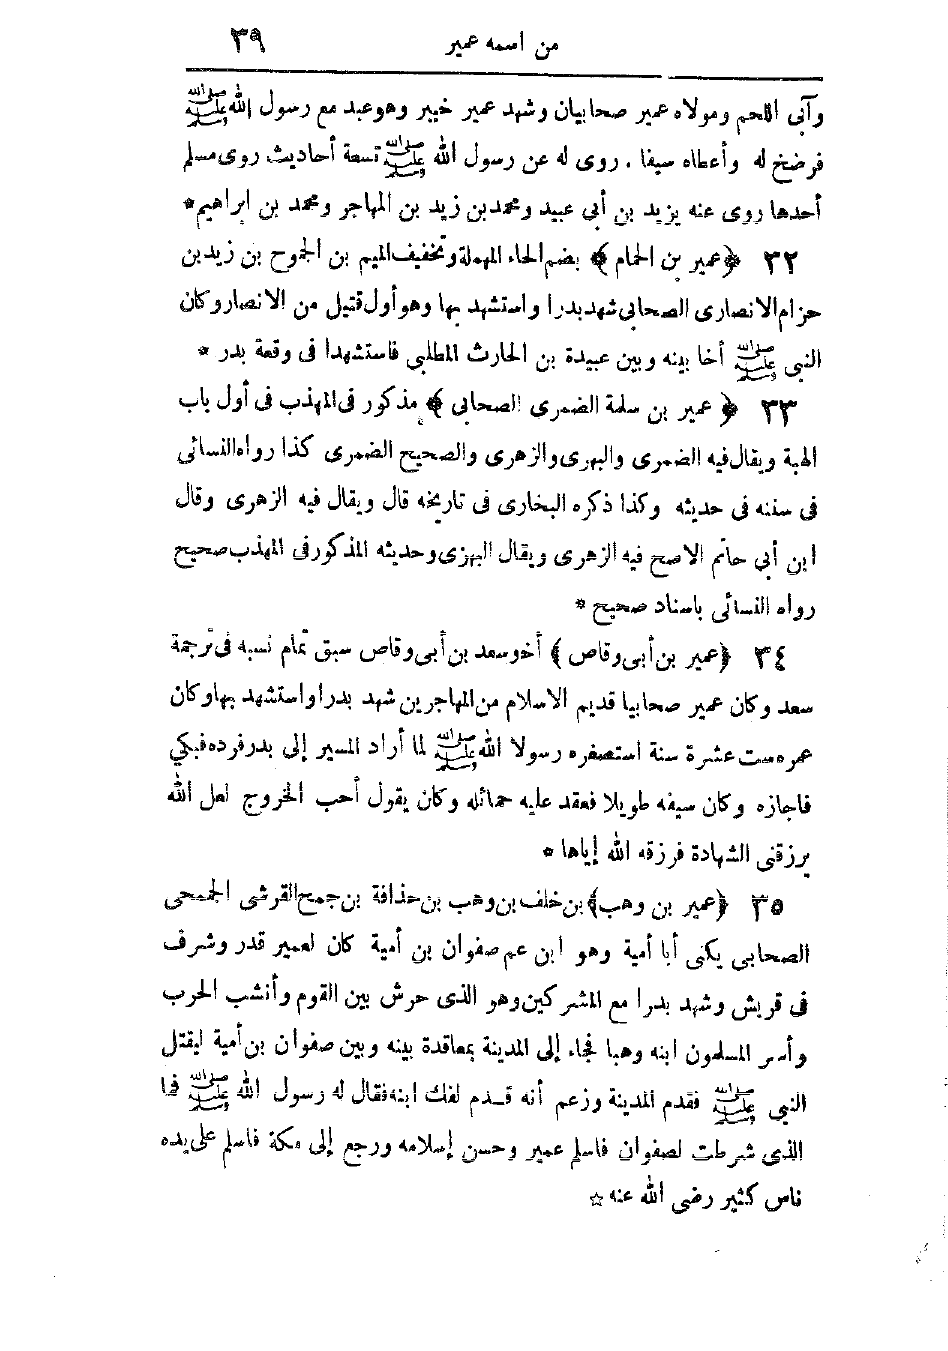 من اسمه عمير ٣٩
وآبى اللحم ومولاه عمير صحابيان وشهد عمير خيبر وهو عبد مع رسول الله ﷺ
فرضخ له وأعطاه سيفا . روى له عن رسول الله ﷺ تسعة أحاديث روى مسلم
أحدها روى عنه يزيد بن أبي عبيد ومحمد بن زيد بن المهاجر ومحمد بن ابراهيم *
٣٢ ﴿عمير بن الحمام﴾ بضم الحاء المهملة وتخفيف الميم بن الجموح بن زيد بن
حزام الانصارى الصحابي شهد بدرا واستشهد بها وهو أول قتيل من الانصار وكان
النبى ﷺ أخا بينه وبين عبيدة بن الحارث المطلبي فاستشهدا فى وقعة بدر *
٣٣ ﴿عمير بن سلمة الضمرى الصحابي﴾ مذكور فى المهذب فى أول باب
الهبة ويقال فيه الضمرى والبهزى والزهرى والصحيح الضمرى كذا رواه النسائى
فى سننه فى حديثه وكذا ذكره البخارى فى تاريخه قال ويقال فيه الزهرى وقال
ابن أبي حاتم الاصح فيه الزهرى ويقال البهزى وحديثه المذكور فى المهذب صحيح
رواه النسائى باسناد صحيح *
٣٤ ﴿عمير بن أبى وقاص﴾ أخو سعد بن أبى وقاص سبق تمام نسبه فى ترجمة
سعد وكان عمير صحابيا قديم الاسلام من المهاجرين شهد بدرا واستشهد بها وكان
عمره ست عشرة سنة استصغره رسولا الله ﷺ لما أراد المسير إلى بدر فرده فبكي
فاجازه وكان سيفه طويلا فعقد عليه حمائله وكان يقول أحب الخروج لعل الله
يرزقنى الشهادة فرزقه الله إياها *
٣٥ ﴿عمير بن وهب﴾ بن خلف بن وهب بن حذافة بن جمح القرشى الجمحى
الصحابى يكنى أبا أمية وهو ابن عم صفوان بن أمية كان لعمير قدر وشرف
فى قريش وشهد بدرا مع المشركين وهو الذى حرش بين القوم وأنشب الحرب
وأسر المسلمون ابنه وهبا فجاء إلى المدينة بمعاقدة بينه وبين صفوان بن أمية ليقتل
النبى ﷺ فقدم المدينة وزعم أنه قدم لفك ابنه فقال له رسول الله ﷺ فما
الذى شرطت لصفوان فاسلم عمير وحسن إسلامه ورجع إلى مكة فاسلم على يده
ناس كثير رضى الله عنه ☆